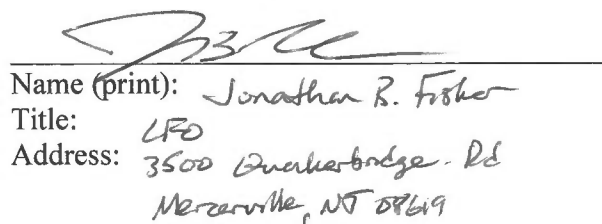 Name (print): Jonathan B. Fisher
Title: CFO
Address: 3500 Quakerbridge Rd
Mercerville, NJ 08619